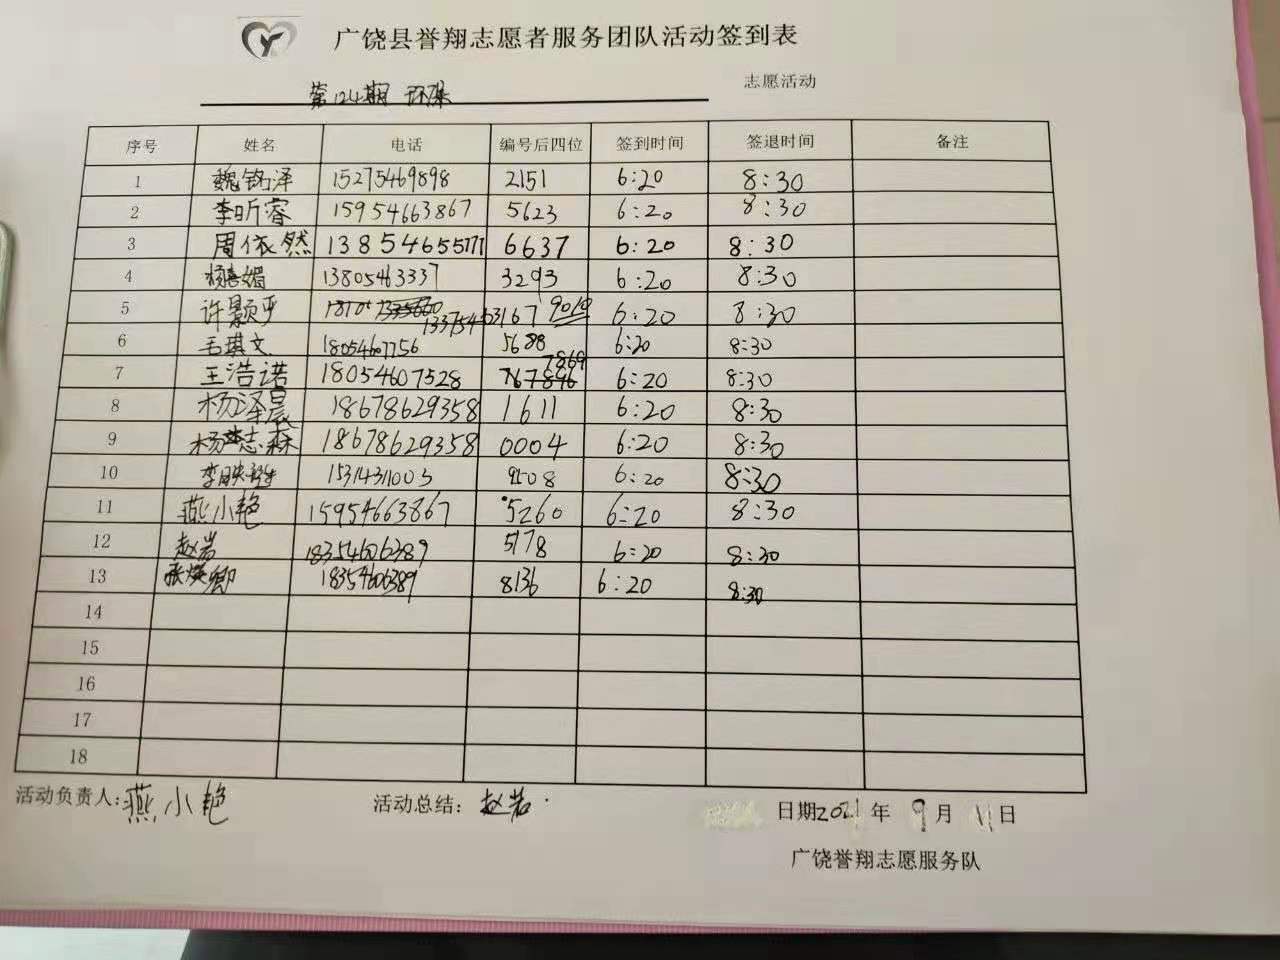 广饶县誉翔志愿者服务团队活动签到表
第124期 环保 志愿活动
序号 姓名 电话 编号后四位 签到时间 签退时间 备注
1 魏铭泽 15275469898 2151 6:20 8:30
2 李昕睿 15954663867 5623 6:20 8:30
3 周依然 13854655777 6637 6:20 8:30
4 杨喜媚 13805463337 3293 6:20 8:30
5 许颢严 13375453167 9010 6:20 8:30
6 毛琪文 18054607756 5688 6:20 8:30
7 王浩诺 18054607528 7869 6:20 8:30
8 杨泽晨 18678629358 1611 6:20 8:30
9 杨志森 18678629358 0004 6:20 8:30
10 李映 15314311003 9508 6:20 8:30
11 燕小艳 15954663867 5260 6:20 8:30
12 赵岩 18354606389 5178 6:20 8:30
13 张煐卿 18354606389 8136 6:20 8:30
14
15
16
17
18
活动负责人:燕小艳 活动总结:赵岩 日期2021年9月11日
广饶誉翔志愿服务队